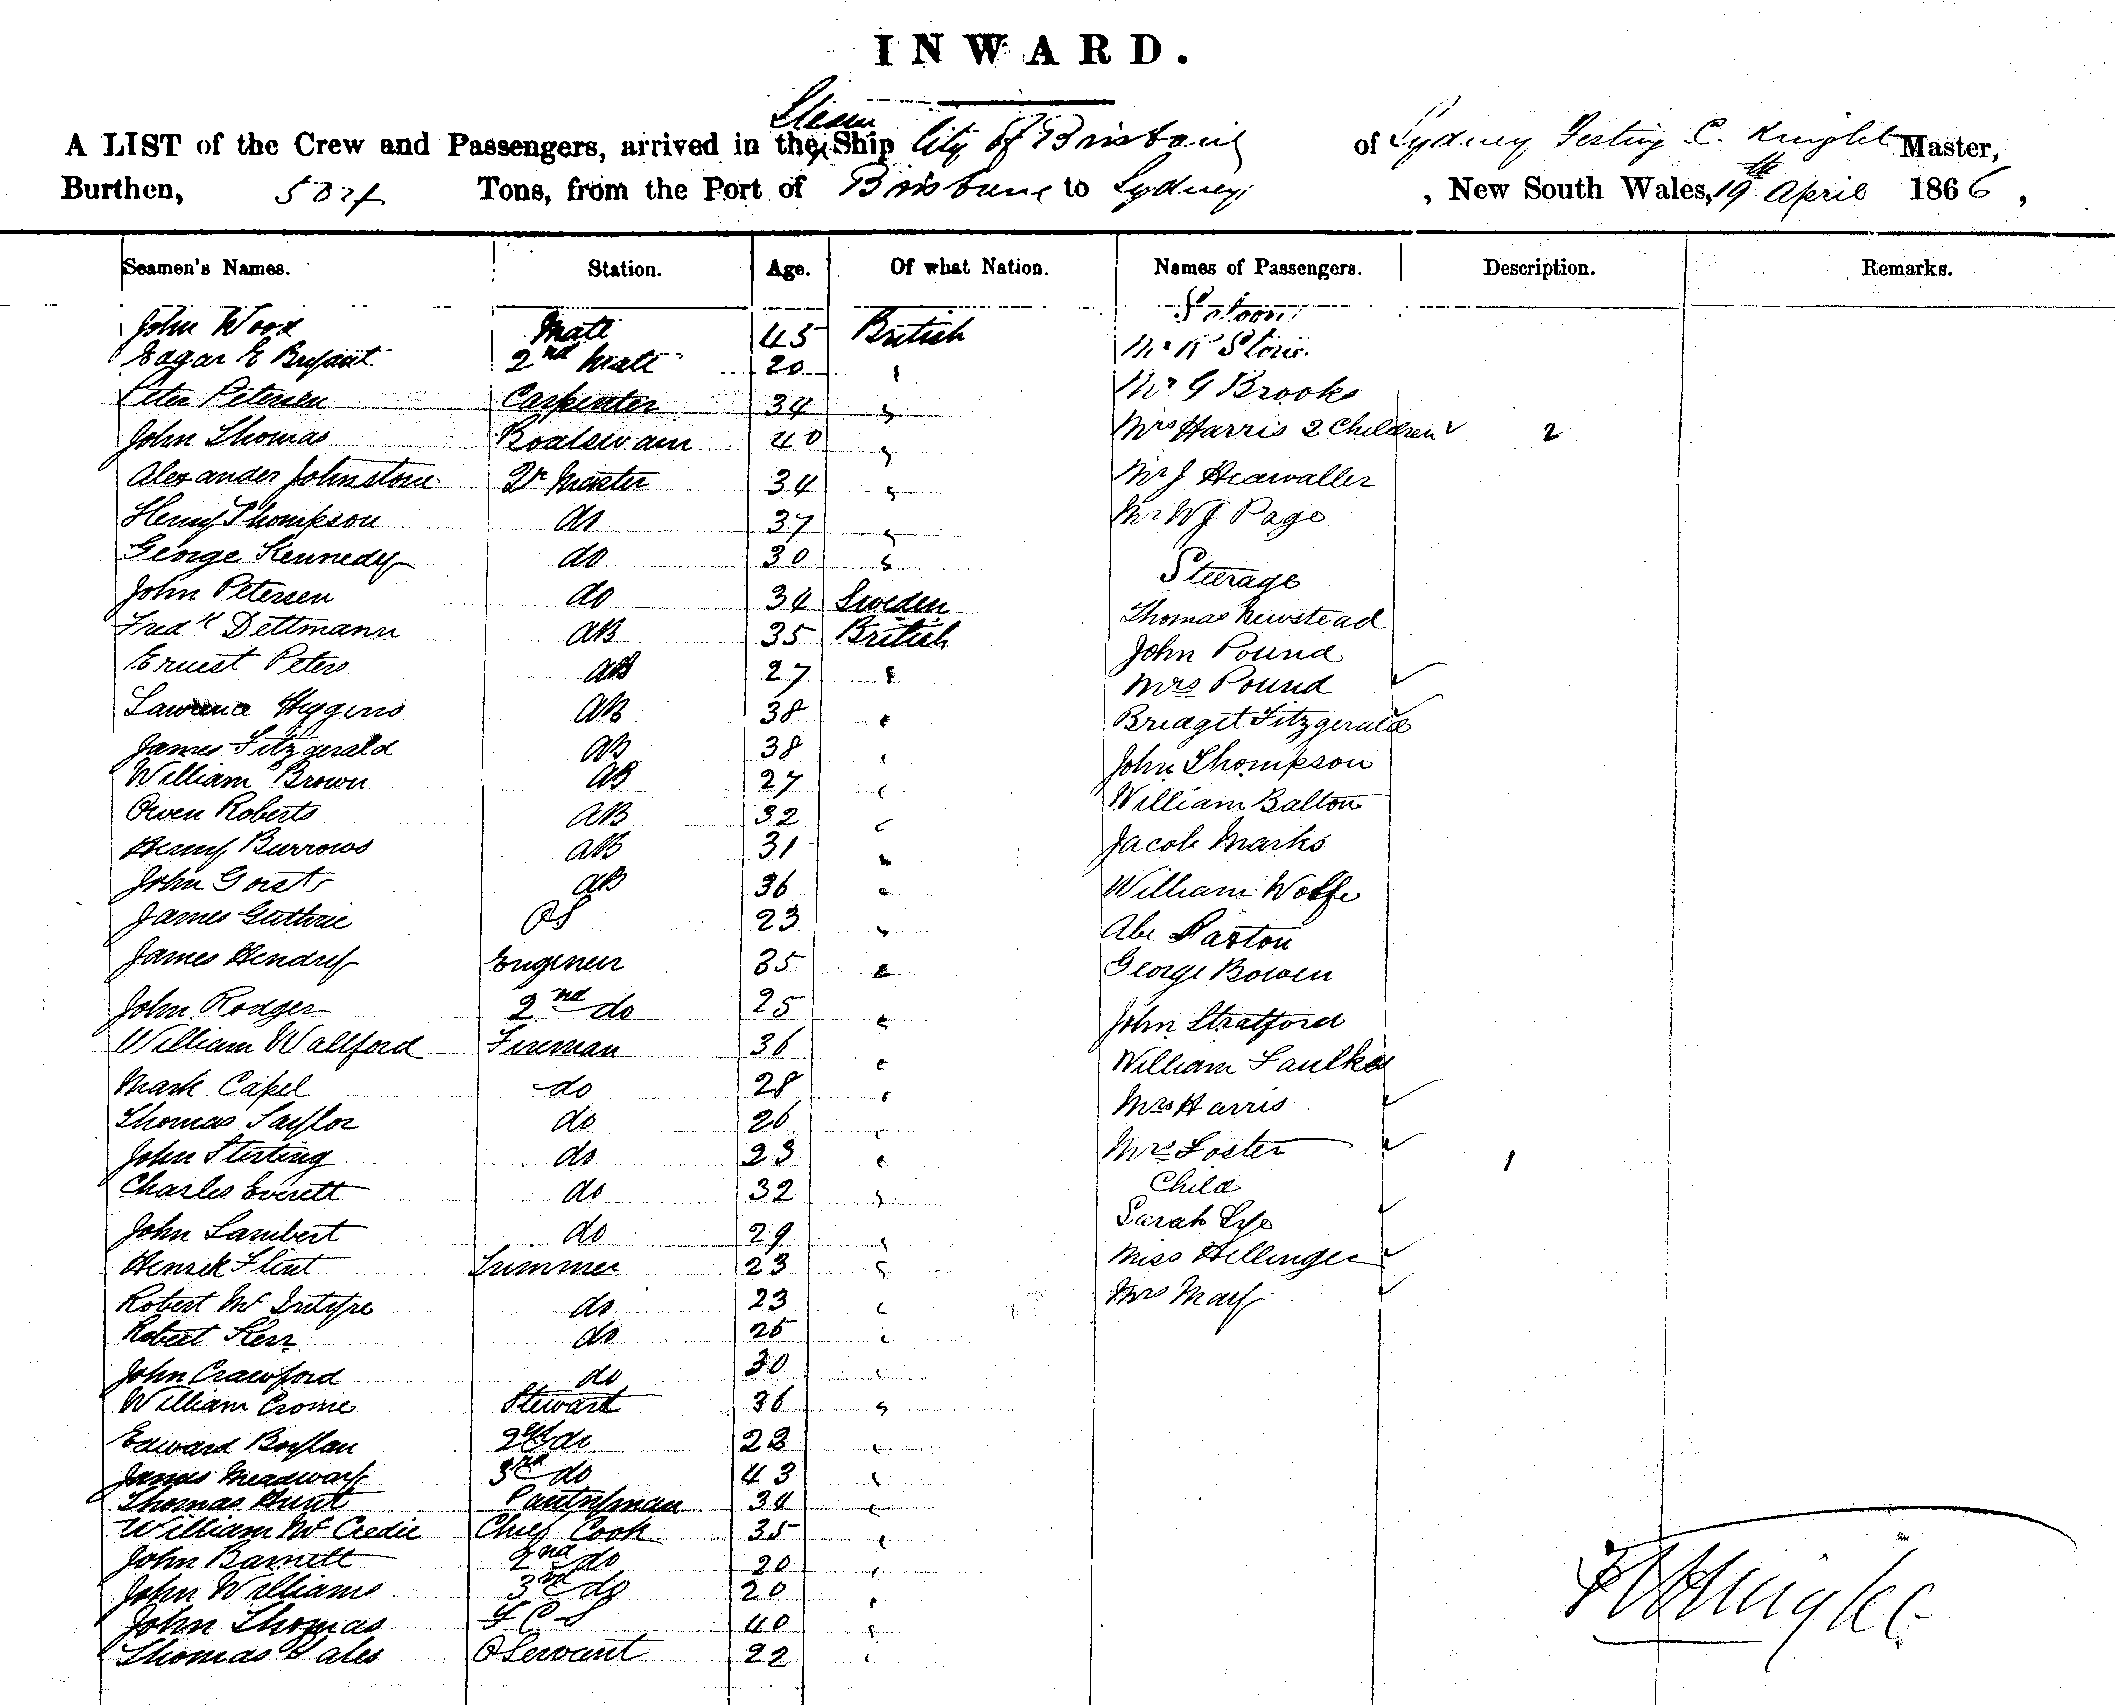 INWARD.
Steam
A LIST of the Crew and Passengers, arrived in the Ship City of Brisbane of Sydney C. Knight Master,
Burthen, 504 Tons, from the Port of Brisbane to Sydney, New South Wales, 19th April 1866,
Seamen's Names. Station. Age. Of what Nation. Names of Passengers. Description. Remarks.
Saloon
John Wood Mate 45 British
Mr R Storie
Edgar E Bryant 2nd Mate 20 "
Mr G Brooks
Peter Petersen Carpenter 34 "
Mrs Harris 2 Children 2
John Thomas Boatswain 40 "
Mr J
Alexander Johnstone Qr Master 34 "
Mr W J Page
Henry Thompson do 37 "
George Kennedy do 30 "
Steerage
John Petersen do 34 Sweden
Thomas Newstead
Fredk Dettmann AB 35 British
John Pound
Ernest Peters AB 27 "
Mrs Pound
Lawrence Higgins AB 38 "
Bridget Fitzgerald
James Fitzgerald AB 38 "
John Thompson
William Brown AB 27 "
William Balton
Owen Roberts AB 32 "
Henry Burrows AB 31 "
Jacob Marks
John Gorst AB 36 "
William Wolfe
James Guthrie OS 23 "
Abe Paxton
James Hendry Engineer 35 "
George Bowen
John Rodger 2nd do 25 "
John Stratford
William Wallford Fireman 36 "
William Faulker
Mark Capel do 28 "
Mrs Harris
Thomas Taylor do 26 "
Mrs Foster 1
John Sterting do 23 "
Child
Charles Everett do 32 "
Sarah Lye
John Lambert do 29 "
Miss Hellinger
Flint Trimmer 23 "
Mrs May
Robert McIntyre do 23 "
Robert Kerr do 25 "
John Crawford do 30 "
William Crome Steward 36 "
Edward Boylan 2nd do 28 "
James Meadway 3rd do 43 "
Thomas Hunt Pantryman 34 "
William McCredie Chief Cook 35 "
John Barnett 2nd do 20 "
John Williams 3rd do 20 "
John Thomas F C S 40 "
Thomas Eales O Servant 22 "
Knight